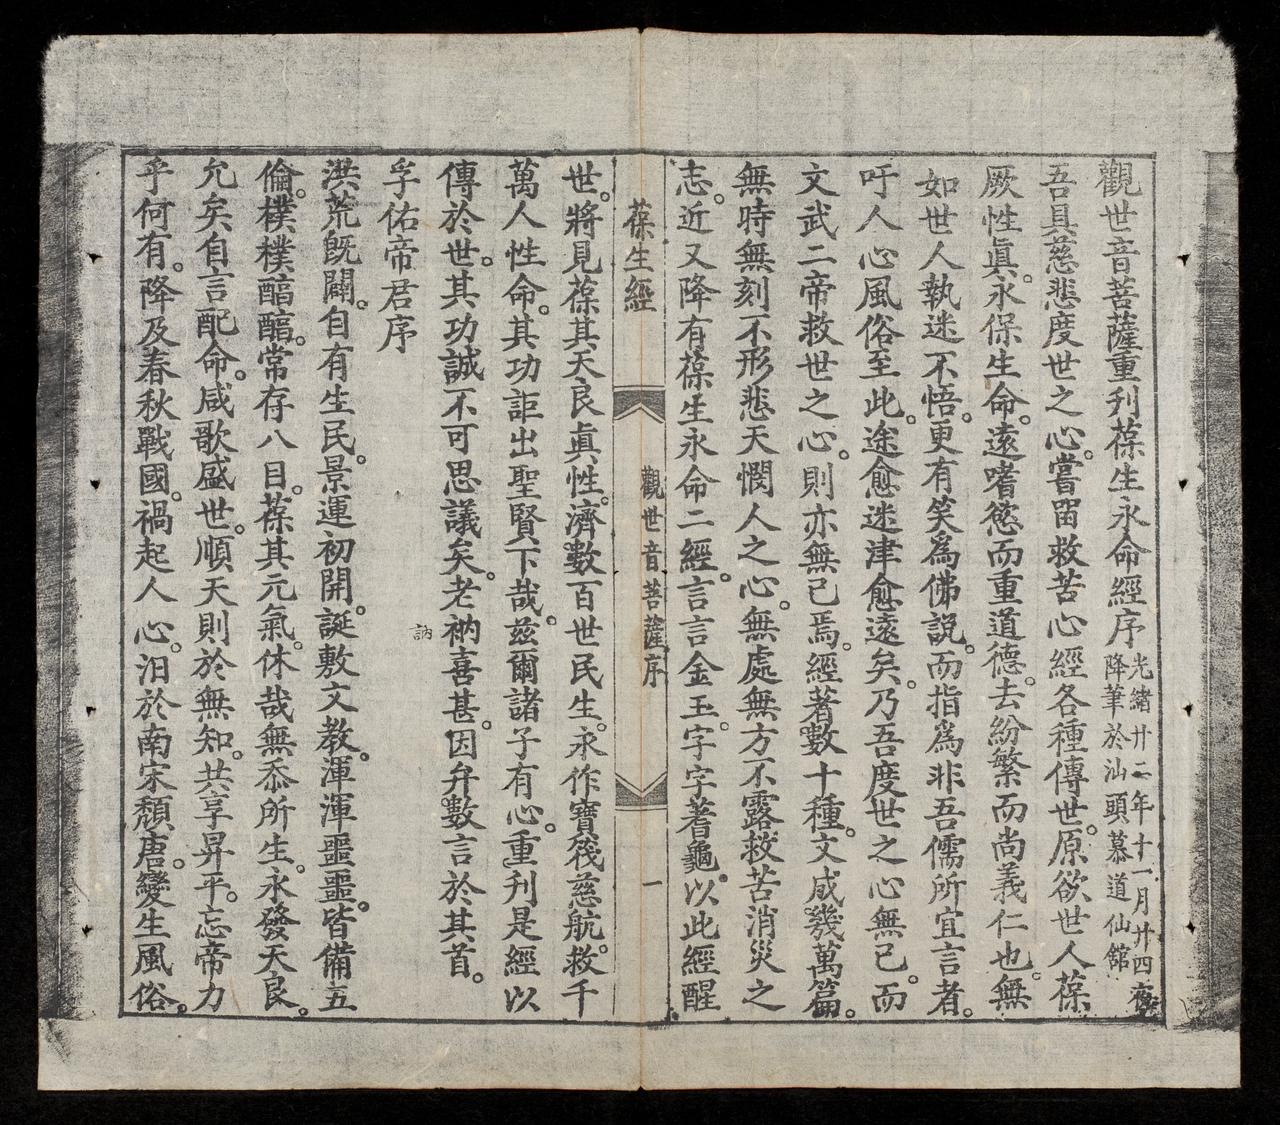 觀世音菩薩重刋葆生永命經序
光緒廿二年十一月廿四夜
降筆於汕頭慕道仙舘
吾具慈悲度世之心。嘗畱救苦心經各種傳世。原欲世人葆
厥性眞。永保生命。遠嗜慾而重道德。去紛繁而尚義仁也。無
如世人執迷不悟。更有笑爲佛説。而指爲非吾儒所宜言者。
吁人心風俗至此。途愈迷津愈遠矣。乃吾度世之心無已。而
文武二帝救世之心。則亦無已焉。經著數十種。文成幾萬篇。
無時無刻不形悲天憫人之心。無處無方不露救苦消災之
志。近又降有葆生永命二經。言言金玉。字字蓍龜。以此經醒
葆生經
觀世音菩薩序
一
世。將見葆其天良眞性。濟數百世民生。永作寶筏慈航。救千
萬人性命。其功詎出聖賢下哉。茲爾諸子有心。重刋是經以
傳於世。其功誠不可思議矣。老衲喜甚。因弁數言於其首。
訥
孚佑帝君序
洪荒旣闢。自有生民。景運初開。誕敷文教。渾渾噩噩。皆備五
倫。樸樸醕醕。常存八目。葆其元氣。休哉無忝所生。永發天良。
允矣自言配命。咸歌盛世。順天則於無知。共享昇平。忘帝力
乎何有。降及春秋戰國。禍起人心。汨於南宋頹唐。變生風俗。